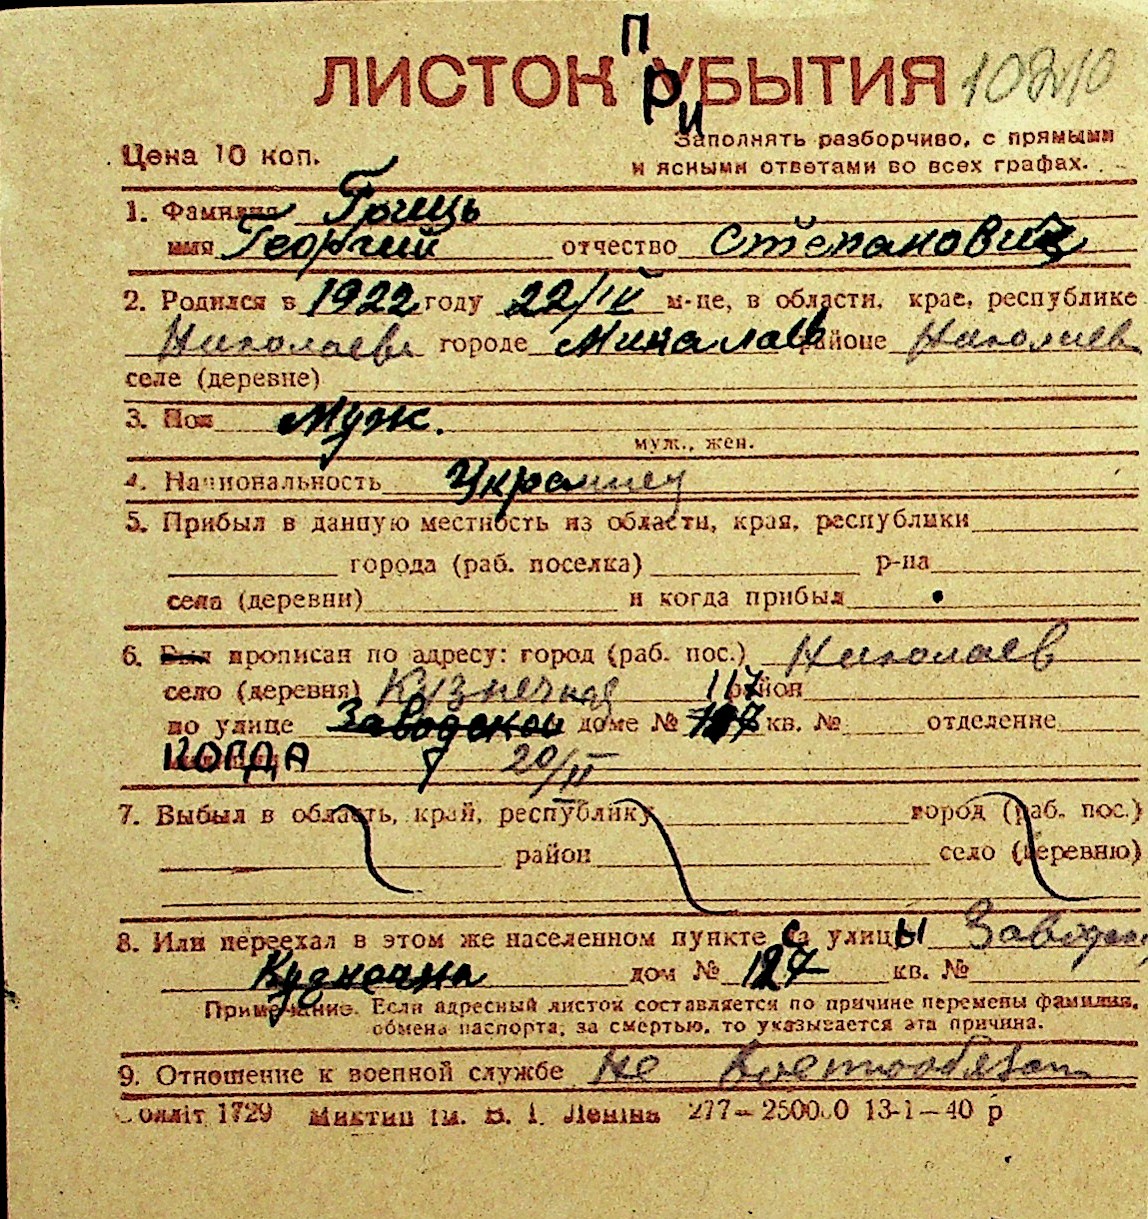 ЛИСТОК ПРИБЫТИЯ
Цена 10 коп.
Заполнять разборчиво, с прямыми
и ясными ответами во всех графах.
1. Фамилия Гриць
имя Георгий отчество Степанович
2. Родился в 1922 году 22/IV м-це, в области, крае, республике
Николаев городе Николаев районе Николаев
селе (деревне)
3. Пол Муж.
муж., жен.
4. Национальность Украинец
5. Прибыл в данную местность из области, края, республики
города (раб. поселка) р-на
села (деревни) и когда прибыл
6. Был прописан по адресу: город (раб. пос.) Николаев
село (деревня) Кузнечная 117 район
по улице Заводской доме № кв. № отделение
КОГДА 20/II
7. Выбыл в область, край, республику город (раб. пос.)
район село (деревню)
8. Или переехал в этом же населенном пункте с улицы Заводской
Кузнечна дом № 127 кв. №
Примечание. Если адресный листок составляется по причине перемены фамилии,
обмена паспорта, за смертью, то указывается эта причина.
9. Отношение к военной службе Не военнообязан
Міктип ім. В. І. Леніна 277—250000 13-1—40 р